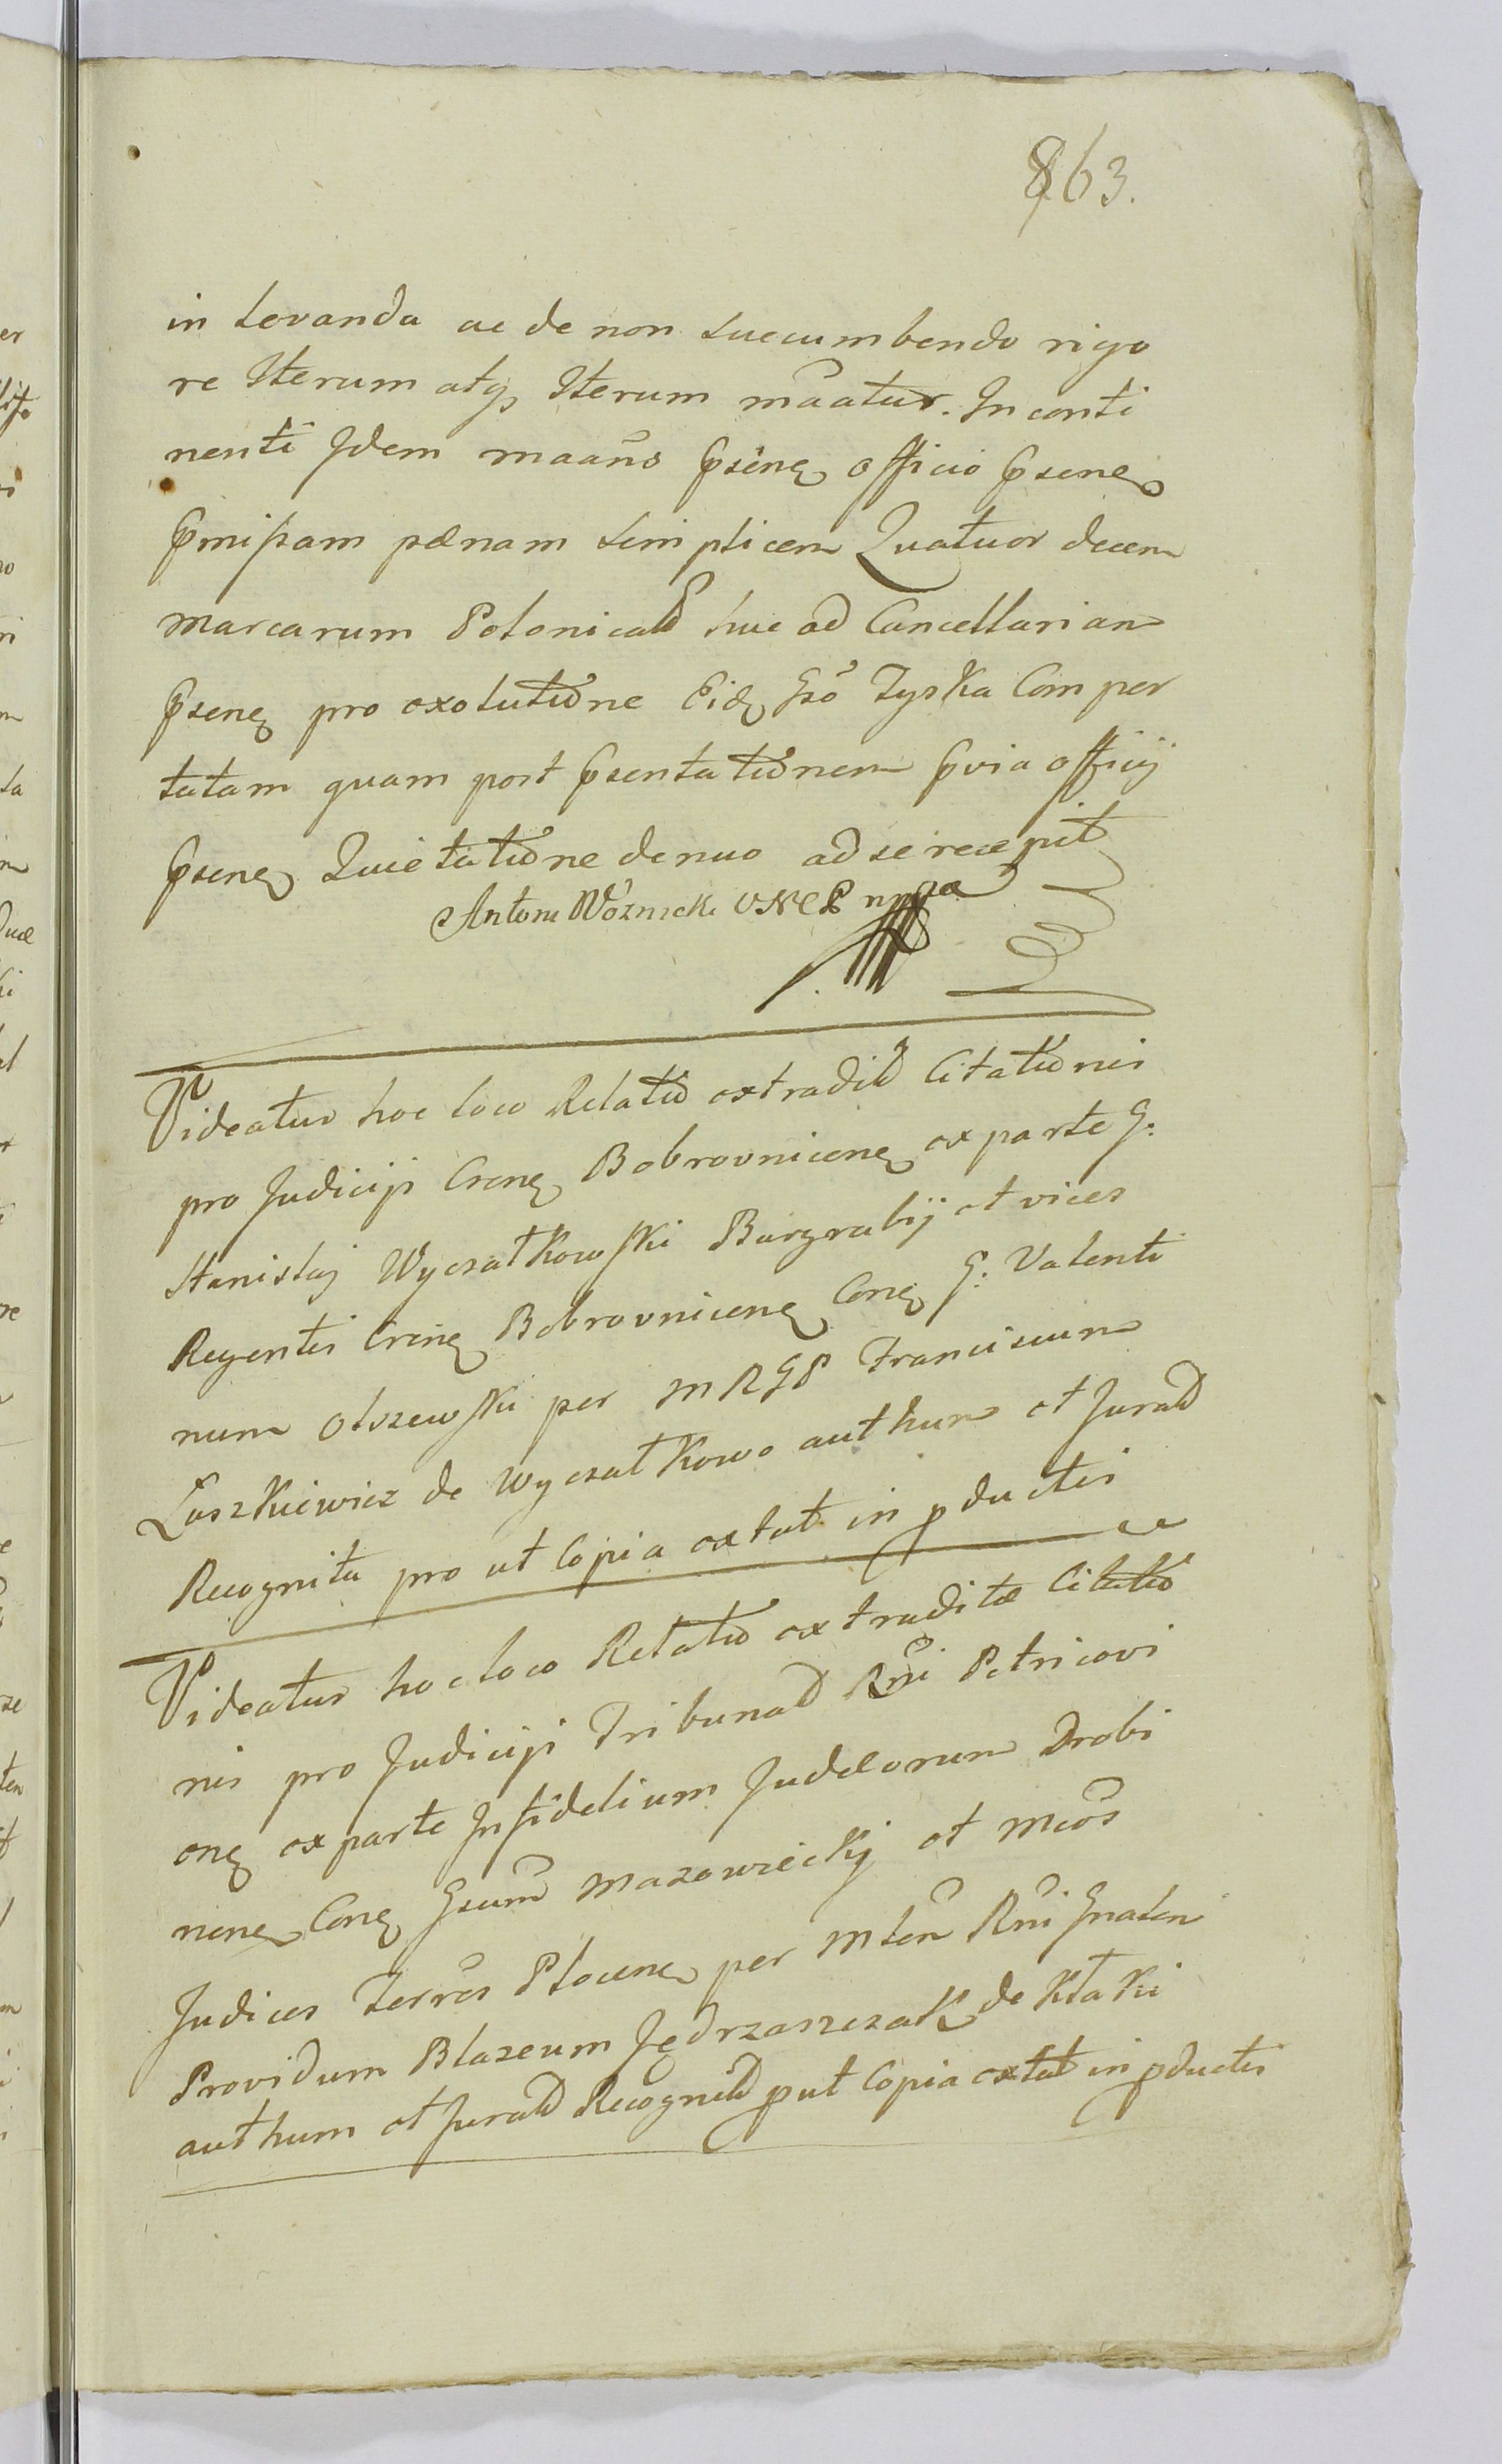 863.
in levanda ac de non succumbendo rigo
re Iterum atq, Iterum mãatur. In conti
nenti Idem maãns Psenq officio Psenq
Pmissam pænam simplicem Quatuor decem
marcarum Polonicalu huc ad Cancellariam
Psenq pro exolutione Eidq Gso Tyska Compor
tatam quam post Psentationem Pvia officij
Psenq Quietatione denuo ad se recepit
Antoni Woznicki VNCP mppa
Videatur hoc loco Relatio extradit Citationis
pro Judicijs Crenq Bobrovnicenq ex parte G:
Stanislaj Wyczałkowski Burgrabij et vices
Regentis Crenq Bobrovnicenq Conq G: Valenti
num Olszewski per MRGP Franciscum
Łaszkiewicz de Wyczałkowo authum et Jurat
Recognita pro ut Copia extat in pductis
Videatur hoc loco Relatio extraditæ Citatio
nis pro Judicijs Tribunal Rni Petricovi
enq ex parte Infidelium Judæorum Drobi
nenq Conq Gsum Mazowiecki et Mcos
Judices Terres Plocenq per Mlem Rni Gnalem
Providum Blazeum Jędrzaszczak de Kłaki
authum et Jurat Recognit put Copia extat in pductis